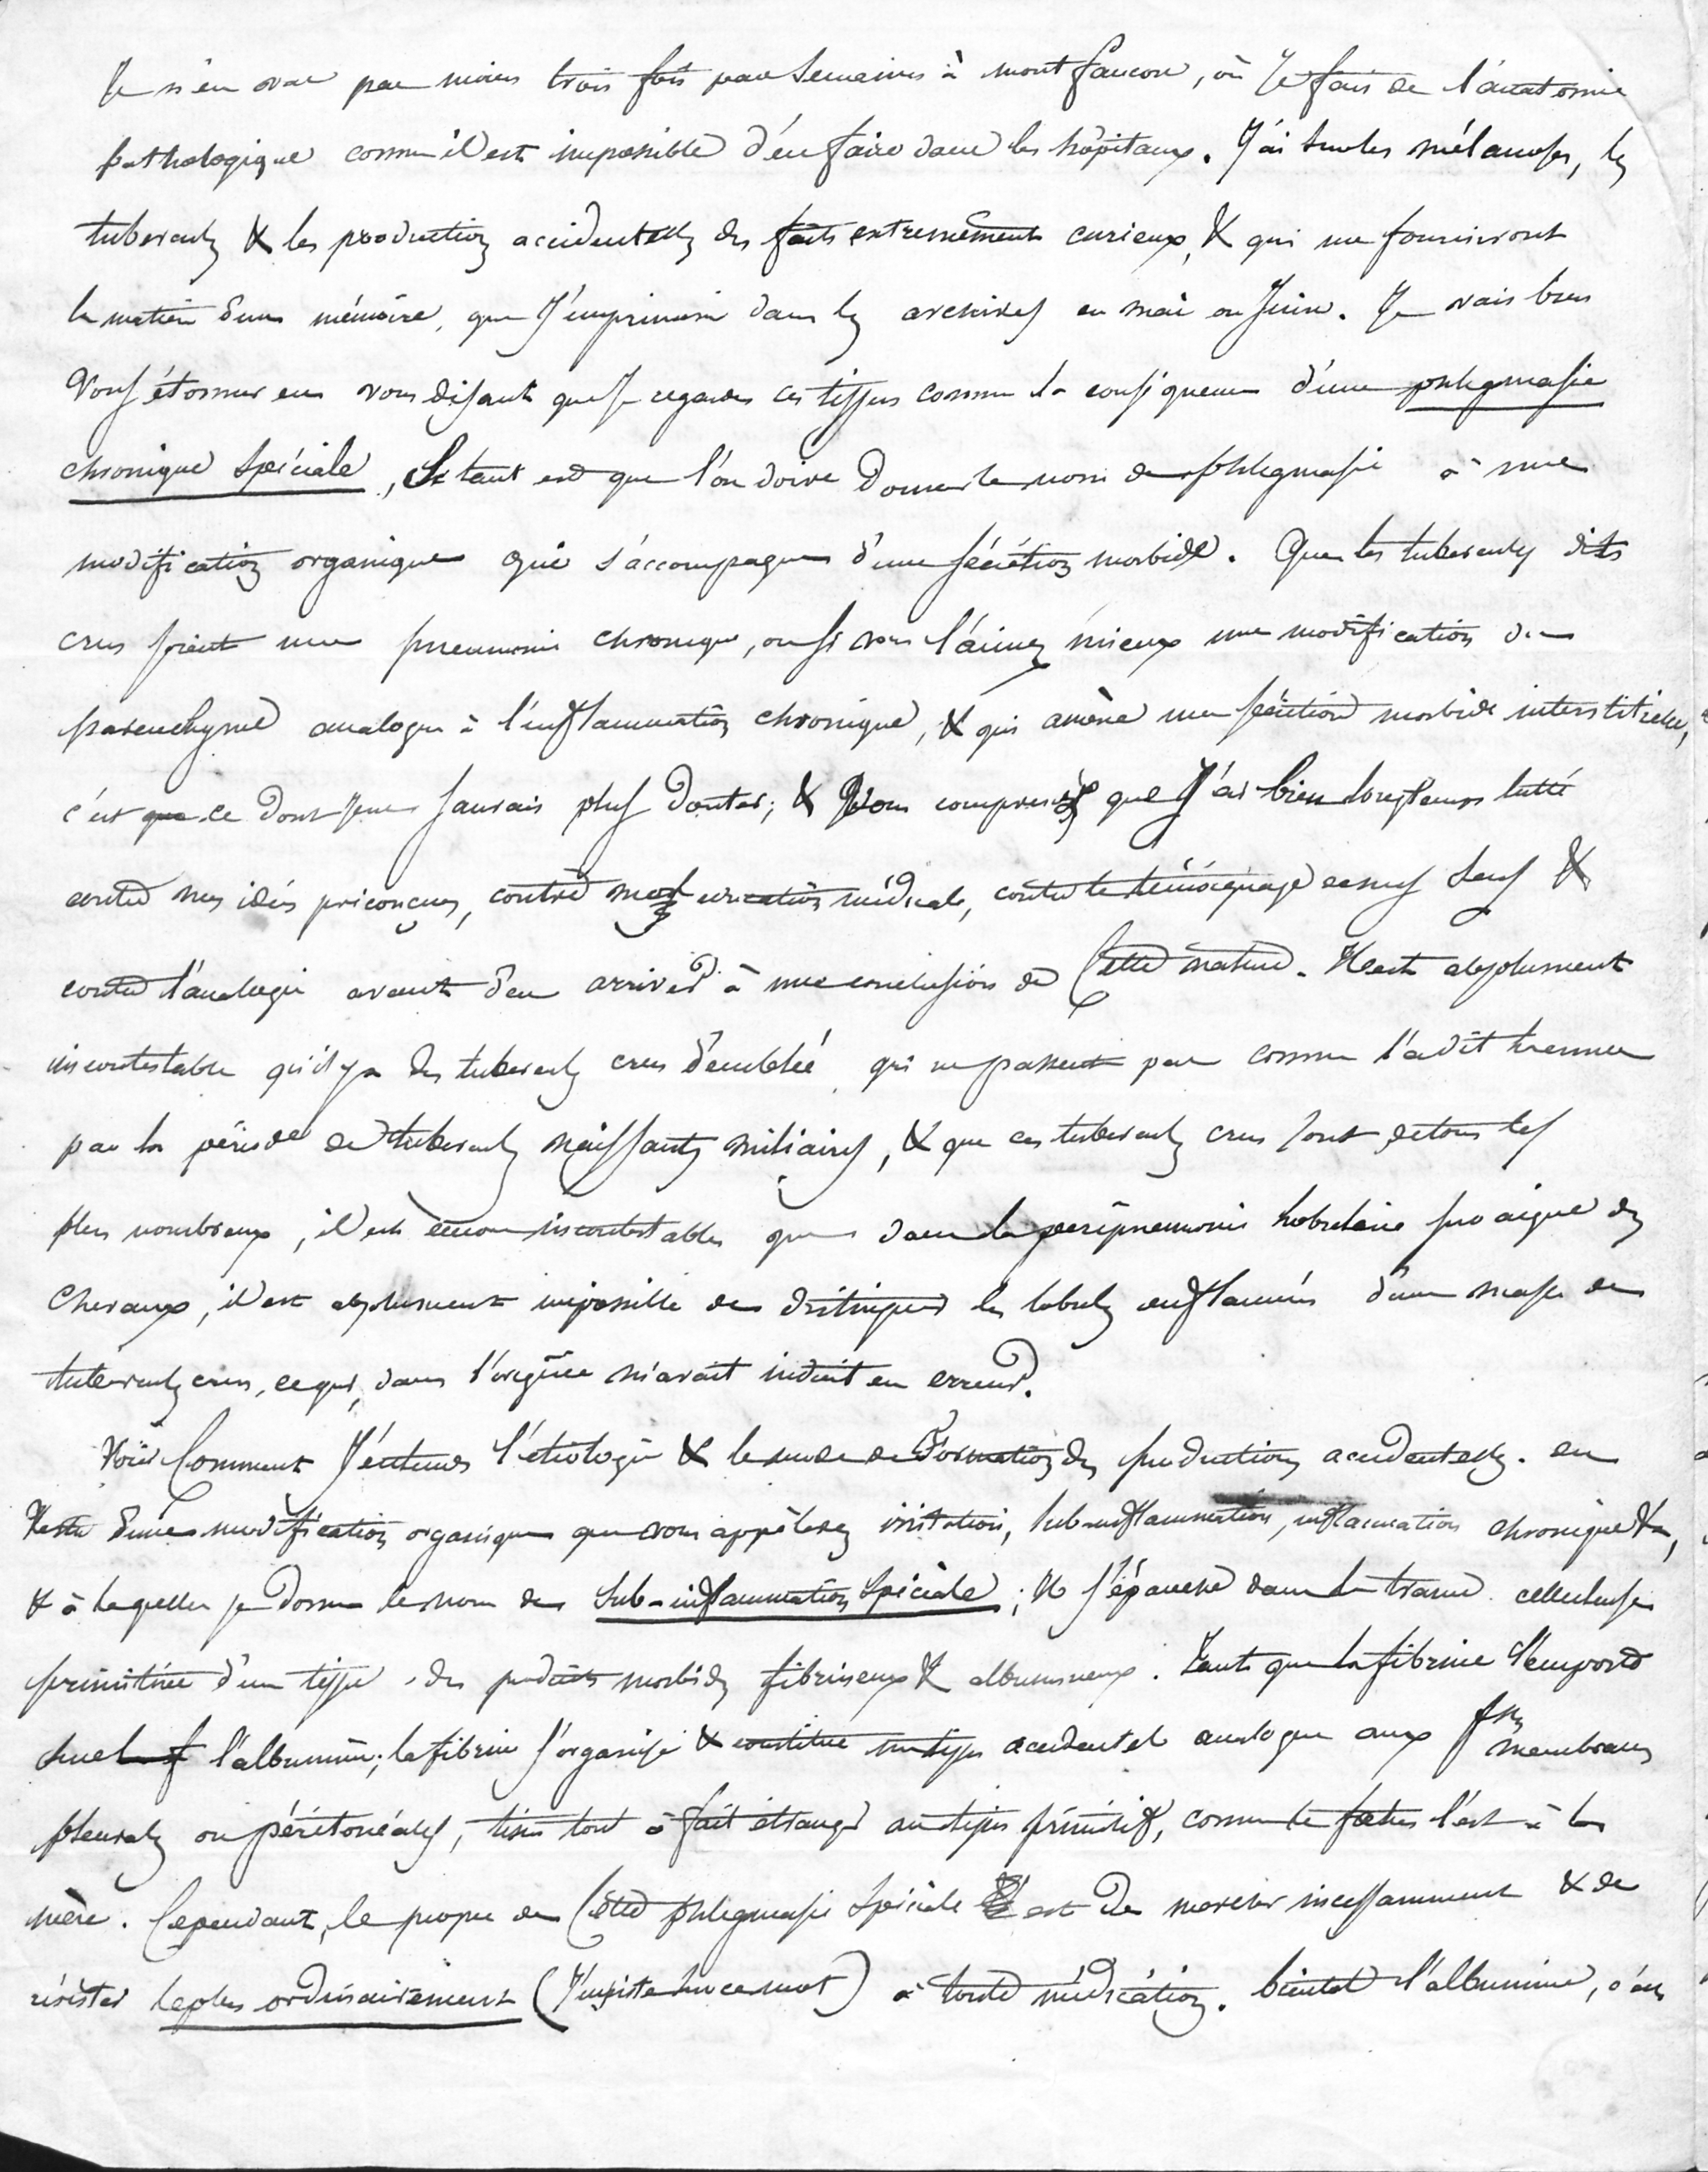 Je n'en vai pas moins trois fois par semaines à montfaucon, où Je fais de l'anatomie
pathologique comme il est impossible d'en faire dans les hôpitaux. J'ai sur les mélanoses, les
tubercules & les productions accidentelles des faits extremement curieux, & qui me fourniront
la matière d'un mémoire, que J'imprimerai dans les archives en mai ou Juin. Je vais bien
Vous étonner en vous disant que Je regarde ces tissus comme la conséquence d'une phlegmasie
chronique spéciale, Si tant est que l'on doive Donner le nom de phlegmasie à une
modification organique qui s'accompagne d'une sécrétion morbide. Que les tubercules dits
crus soient une pneumonie chronique, ou si vous l'aimez mieux une modification du
parenchyme analogue à l'inflammation chronique, & qui amène une sécrétion morbide interstitielle,
c'est ce Dont Je ne saurais plus Douter; & Vous comprenez que J'ai bien longtemps lutté
contre mes idées préconçues, contre mon education médicale, contre le témoignage de mes sens &
contre l'analogie avant d'en arriver à une conclusion de Cette nature. Il est absolument
incontestable qu'il y a des tubercules crus d'emblée qui ne passent pas comme l'a dit Laennec
par la période de tubercules naissants miliaires, & que ces tubercules crus sont de tous les
plus nombreux, il est encore incontestable que dans la peripneumonie lobulaire suraigue des
Chevaux, il est absolument impossible de distinguer les lobules enflammés d'une masse de
tubercules crus, ce qui, dans l'origine m'avait induit en erreur.
Voici Comment J'entends l'étiologie & le mode de Formation des productions accidentelles. en
vertu d'une modification organique que vous appèlerez irritation, sub-inflammation, inflammation chronique &a,
& à laquelle je donne le nom de Sub-inflammation Spéciale; Il s'épanche dans la trame celluleuse
primitive d'un tissu, des produits morbides fibrineux & albumineux. Tant que la fibrine l'emporte
sur l'albumine, la fibrine s'organise & constitue un tissu accidentel analogue aux fses membranes
pleurales ou péritonéales, tissu tout à fait étranger au tissu primitif, comme le fœtus l'est à la
mère. Cependant, le propre de Cette phlegmasie Spéciale est De marcher incessamment & de
résister le plus ordinairement (J'insiste sur ce mot) à toute médication. bientot l'albumine, d'un